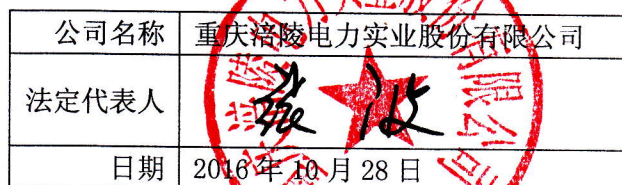 公司名称 重庆涪陵电力实业股份有限公司
法定代表人 张波
日期 2016年10月28日